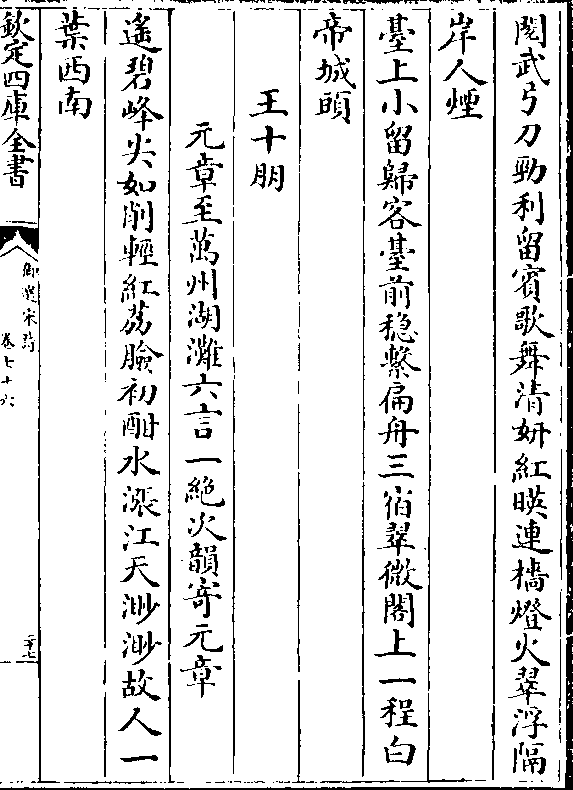 閱武弓刀勁利留賓歌舞清妍紅暎連檣燈火翠浮隔
岸人煙
臺上小留歸客臺前穩繫扁舟三宿翠微閣上一程白
帝城頭
王十朋
元章至萬州湖灘六言一絶次韻寄元章
遙碧峰尖如削輕紅荔臉初酣水漲江天渺渺故人一
葉西南
欽定四庫全書
御選宋詩
卷七十六
二十七